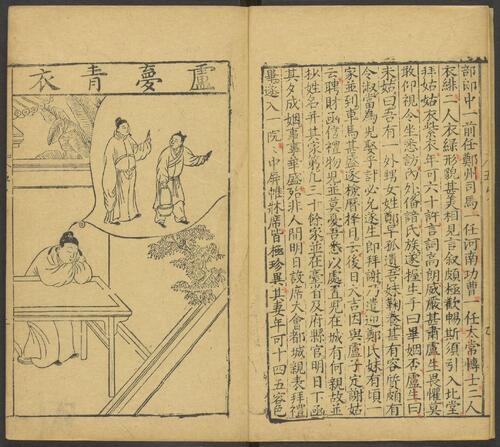 部郎中一前任鄭州司馬一任河南功曹一任太常博士二人
衣緋二人衣綠形貌甚美相見言敘頗極歡暢斯須引入北堂
拜姑姑衣紫衣年可六十許言詞高朗威嚴甚肅盧生畏懼莫
敢仰視令坐悉訪內外備諳氏族遂握生手曰畢姻否盧生曰
未姑曰吾有一外甥女姓鄭早孤遺吾妹鞠養甚有容質頗有
令淑當為兒娶乎計必允遂生即拜謝乃遣迎鄭氏妹有頃一
家並到車馬甚盛遂檢曆擇日云後日大吉因與盧子定謝姑
云聘財函信禮物兒並莫憂吾悉以處置兒在城有何親故並
抄姓名并其家第凡三十餘家並在臺省及府縣官明日下函
其夕成姻事事華盛殆非人間明日設席大會都城親表拜禮
畢遂入一院中屏帷牀席皆極珍異其妻年可十四五容色
盧夢青衣